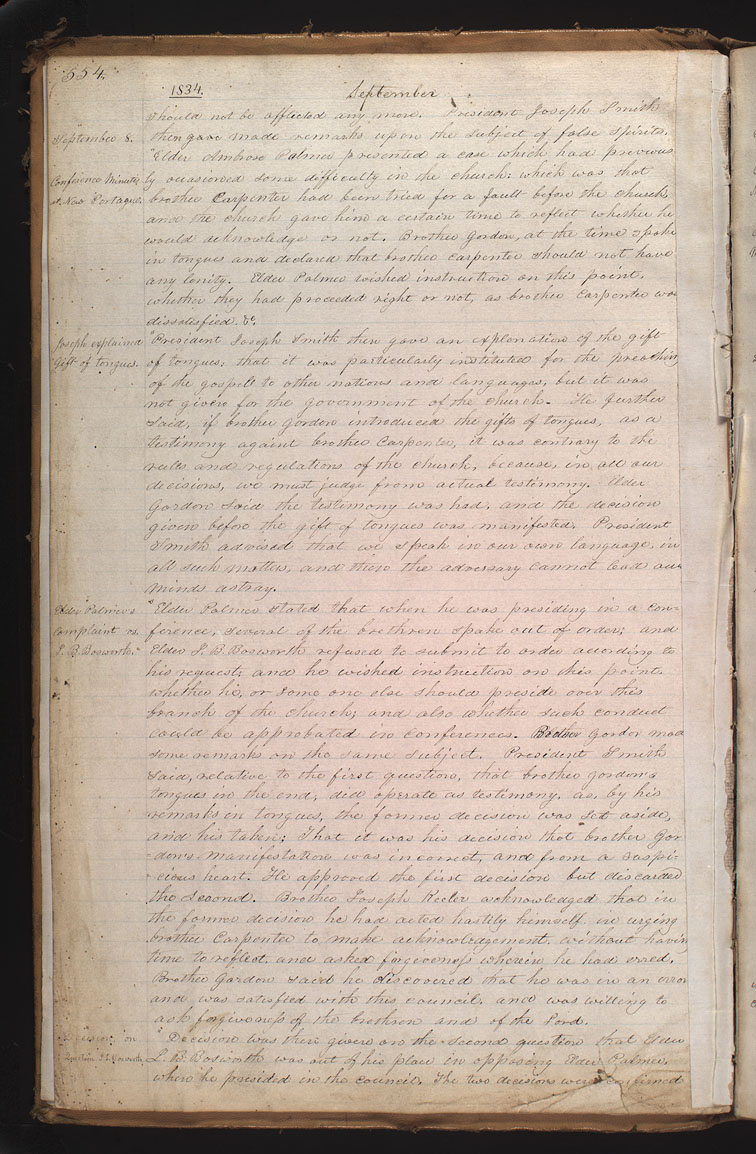 554.
1834. September
should not be afflicted any more. President Joseph Smith
September 8.
then gave made remarks upon the subject of false spirits.
"Elder Ambrose Palmer presented a case which had previous
Conference Minutes
ly occasioned some difficulty in the church: which was that
at New Portage.
brother Carpenter had been tried for a fault before the church,
and the church gave him a certain time to reflect whether he
would acknowledge or not. Brother Gordon, at the time spake
in tongues and declared that brother Carpenter should not have
any lenity. Elder Palmer wished instruction on this point,
whether they had proceeded right or not, as brother Carpenter was
dissatisfied. &c.
Joseph explained
"President Joseph Smith then gave an explanation of the gift
Gift of tongues.
of tongues; that it was particularly instituted for the preaching
of the gospel to other nations and languages, but it was
not given for the government of the church. He further
said, if brother Gordon introduced the gifts of tongues, as a
testimony againt brother Carpenter, it was contrary to the
rules and regulations of the church, because, in all our
decisions, we must judge from actual testimony. Elder
Gordon said the testimony was had, and the decision
given before the gift of tongues was manifested. President
Smith advised that we speak in our own language, in
all such matters, and then the adversary cannot lead our
minds astray.
Elder Palmer's
"Elder Palmer stated that when he was presiding in a con-
complaint vs.
ference, several of the brethren spake out of order; and
L. B. Bosworth.
Elder L. B. Bosworth refused to submit to order according to
his request; and he wished instruction on this point,
whether he, or some one else should preside over this
branch of the church; and also whether such conduct
could be approbated in conferences. Brother Gordon mad
some remarks on the same subject. President Smith
said, relative to the first question, that brother gordon's
tongues in the end, did operate as testimony, as, by his
remarks in tongues, the former decision was set aside,
and his taken; That it was his decision that brother Gor-
-don's manifestation was incorrect, and from a suspi-
-cious heart. He approved the first decision but discarded
the second. Brother Joseph Keeler acknowledged that in
the former decision he had acted hastily himself in urging
brother Carpenter to make acknowledgement, without having
time to reflect, and asked forgiveness wherein he had erred.
Brother Gordon said he discovered that he was in an error
and was satisfied with this council, and was willing to
ask forgiveness of the brethren and of the Lord.
Decision on
"Decision was then given on the second question that Elder
L. B. Bosworth
L. B. Bosworth was out of his place in opposing Elder Palmer,
when he presided in the council. The two decisions were confirmed